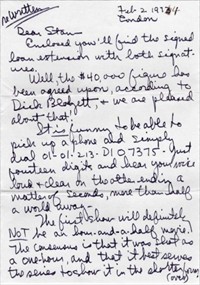 rewritten
Feb 2 1974
London
Dear Stan
Enclosed you'll find the signed
loan extension with both signat-
ures.
Well, the $40,000 figure has
been agreed upon, according to
Dick Blodgett, & we are pleased
about that.
It is funny to be able to
pick up a phone and simply
dial 01-01-213-DI 0 7375 - Just
fourteen digits and hear your voice
loud & clear on the other end in a
matter of seconds, more than half
a world away.
The first show will definitely
NOT be an hour-and-a-half movie!
The consensus is that it was shot as
a one-hour, and that it best serves
the series to show it in the shorter form,
(over)